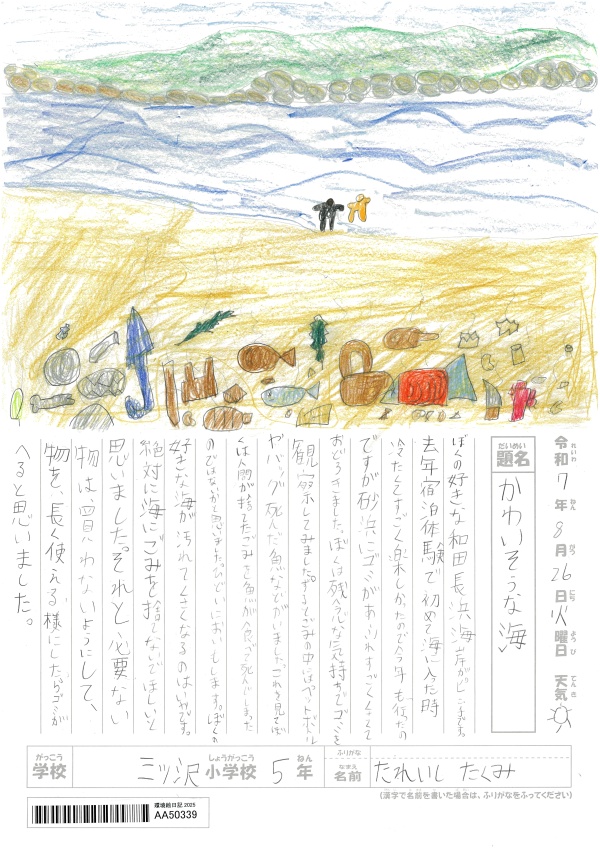 令和7年8月26日火曜日 天気
れいわ ねん がつ にち ようび てんき
だいめい
題名
かわいそうな海
ぼくの好きな和田長浜海岸がピンチです。
去年宿泊体験で初めて海に入った時
冷たくてすごく楽しかったので今年も行ったの
ですが砂浜にゴミがあふれすごくくさくて
おどろきました。ぼくは残念な気持ちでゴミを
観察してみました。するとごみの中にはペットボトル
やバッグ、死んだ魚などがいました。これを見てぼ
くは人間が捨てたごみを魚が食べて死んでしまった
のではないかと思いました。ひどいにおいもします。ぼくの
好きな海が汚れてくさくなるのはいやです。
絶対に海にごみを捨てないでほしいと
思いました。それと必要ない
物は買わないようにして、
物を長く使える様にしたらゴミが
へると思いました。
がっこう
学校
三ツ沢
しょうがっこう
小学校
5
ねん
年
ふりがな
なまえ
名前
たれいし たくみ
(漢字で名前を書いた場合は、ふりがなをふってください)
環境絵日記2025
AA50339